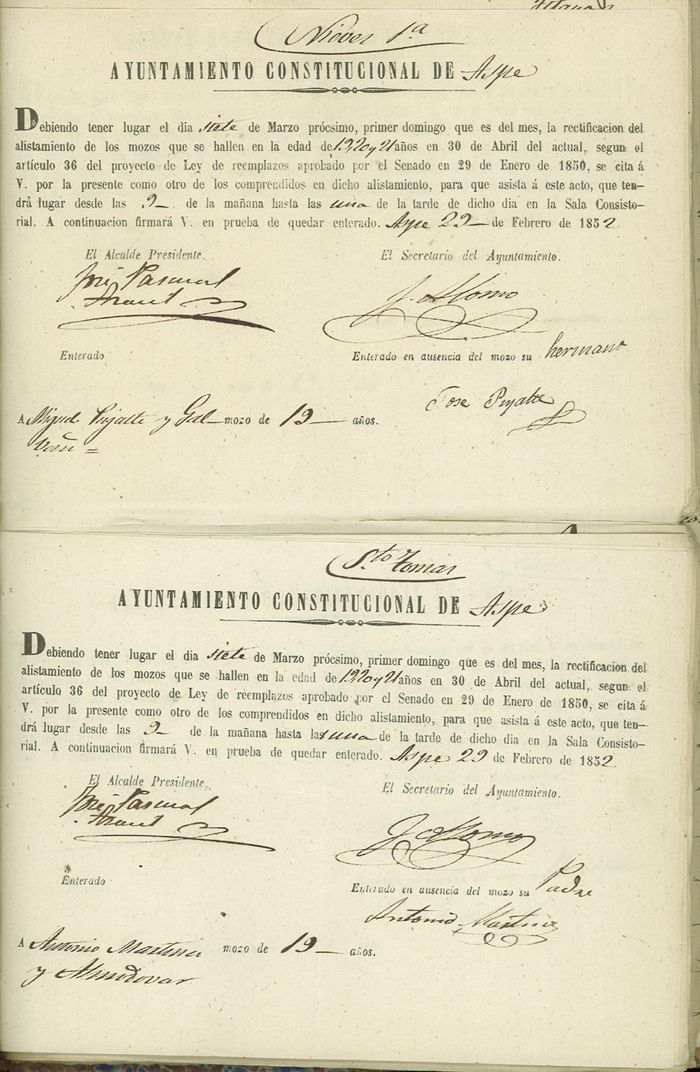 Nieves 1ª
AYUNTAMIENTO CONSTITUCIONAL DE Aspe
Debiendo tener lugar el dia siete de Marzo prócsimo, primer domingo que es del mes, la rectificacion del
alistamiento de los mozos que se hallen en la edad de 19 20 y 21 años en 30 de Abril del actual, segun el
artículo 36 del proyecto de Ley de reemplazos aprobado por el Senado en 29 de Enero de 1850, se cita á
V. por la presente como otro de los comprendidos en dicho alistamiento, para que asista á este acto, que ten-
drá lugar desde las 9 de la mañana hasta las una de la tarde de dicho dia en la Sala Consisto-
rial. A continuacion firmará V. en prueba de quedar enterado. Aspe 29 de Febrero de 1852
El Alcalde Presidente.
El Secretario del Ayuntamiento.
José Pascual
J. Alonso
Enterado
Enterado en ausencia del mozo su hermano
Jose Pujalte
A Miguel Pujalte y Gal mozo de 19 años.
Sto Tomas
AYUNTAMIENTO CONSTITUCIONAL DE Aspe
Debiendo tener lugar el dia siete de Marzo prócsimo, primer domingo que es del mes, la rectificacion del
alistamiento de los mozos que se hallen en la edad de 19 20 y 21 años en 30 de Abril del actual, segun el
artículo 36 del proyecto de Ley de reemplazos aprobado por el Senado en 29 de Enero de 1850, se cita á
V. por la presente como otro de los comprendidos en dicho alistamiento, para que asista á este acto, que ten-
drá lugar desde las 9 de la mañana hasta las una de la tarde de dicho dia en la Sala Consisto-
rial. A continuacion firmará V. en prueba de quedar enterado. Aspe 29 de Febrero de 1852
El Alcalde Presidente.
El Secretario del Ayuntamiento.
José Pascual
J. Alonso
Enterado
Enterado en ausencia del mozo su Padre
Antonio Martinez
A Antonio Martinez mozo de 19 años.
y Almodovar